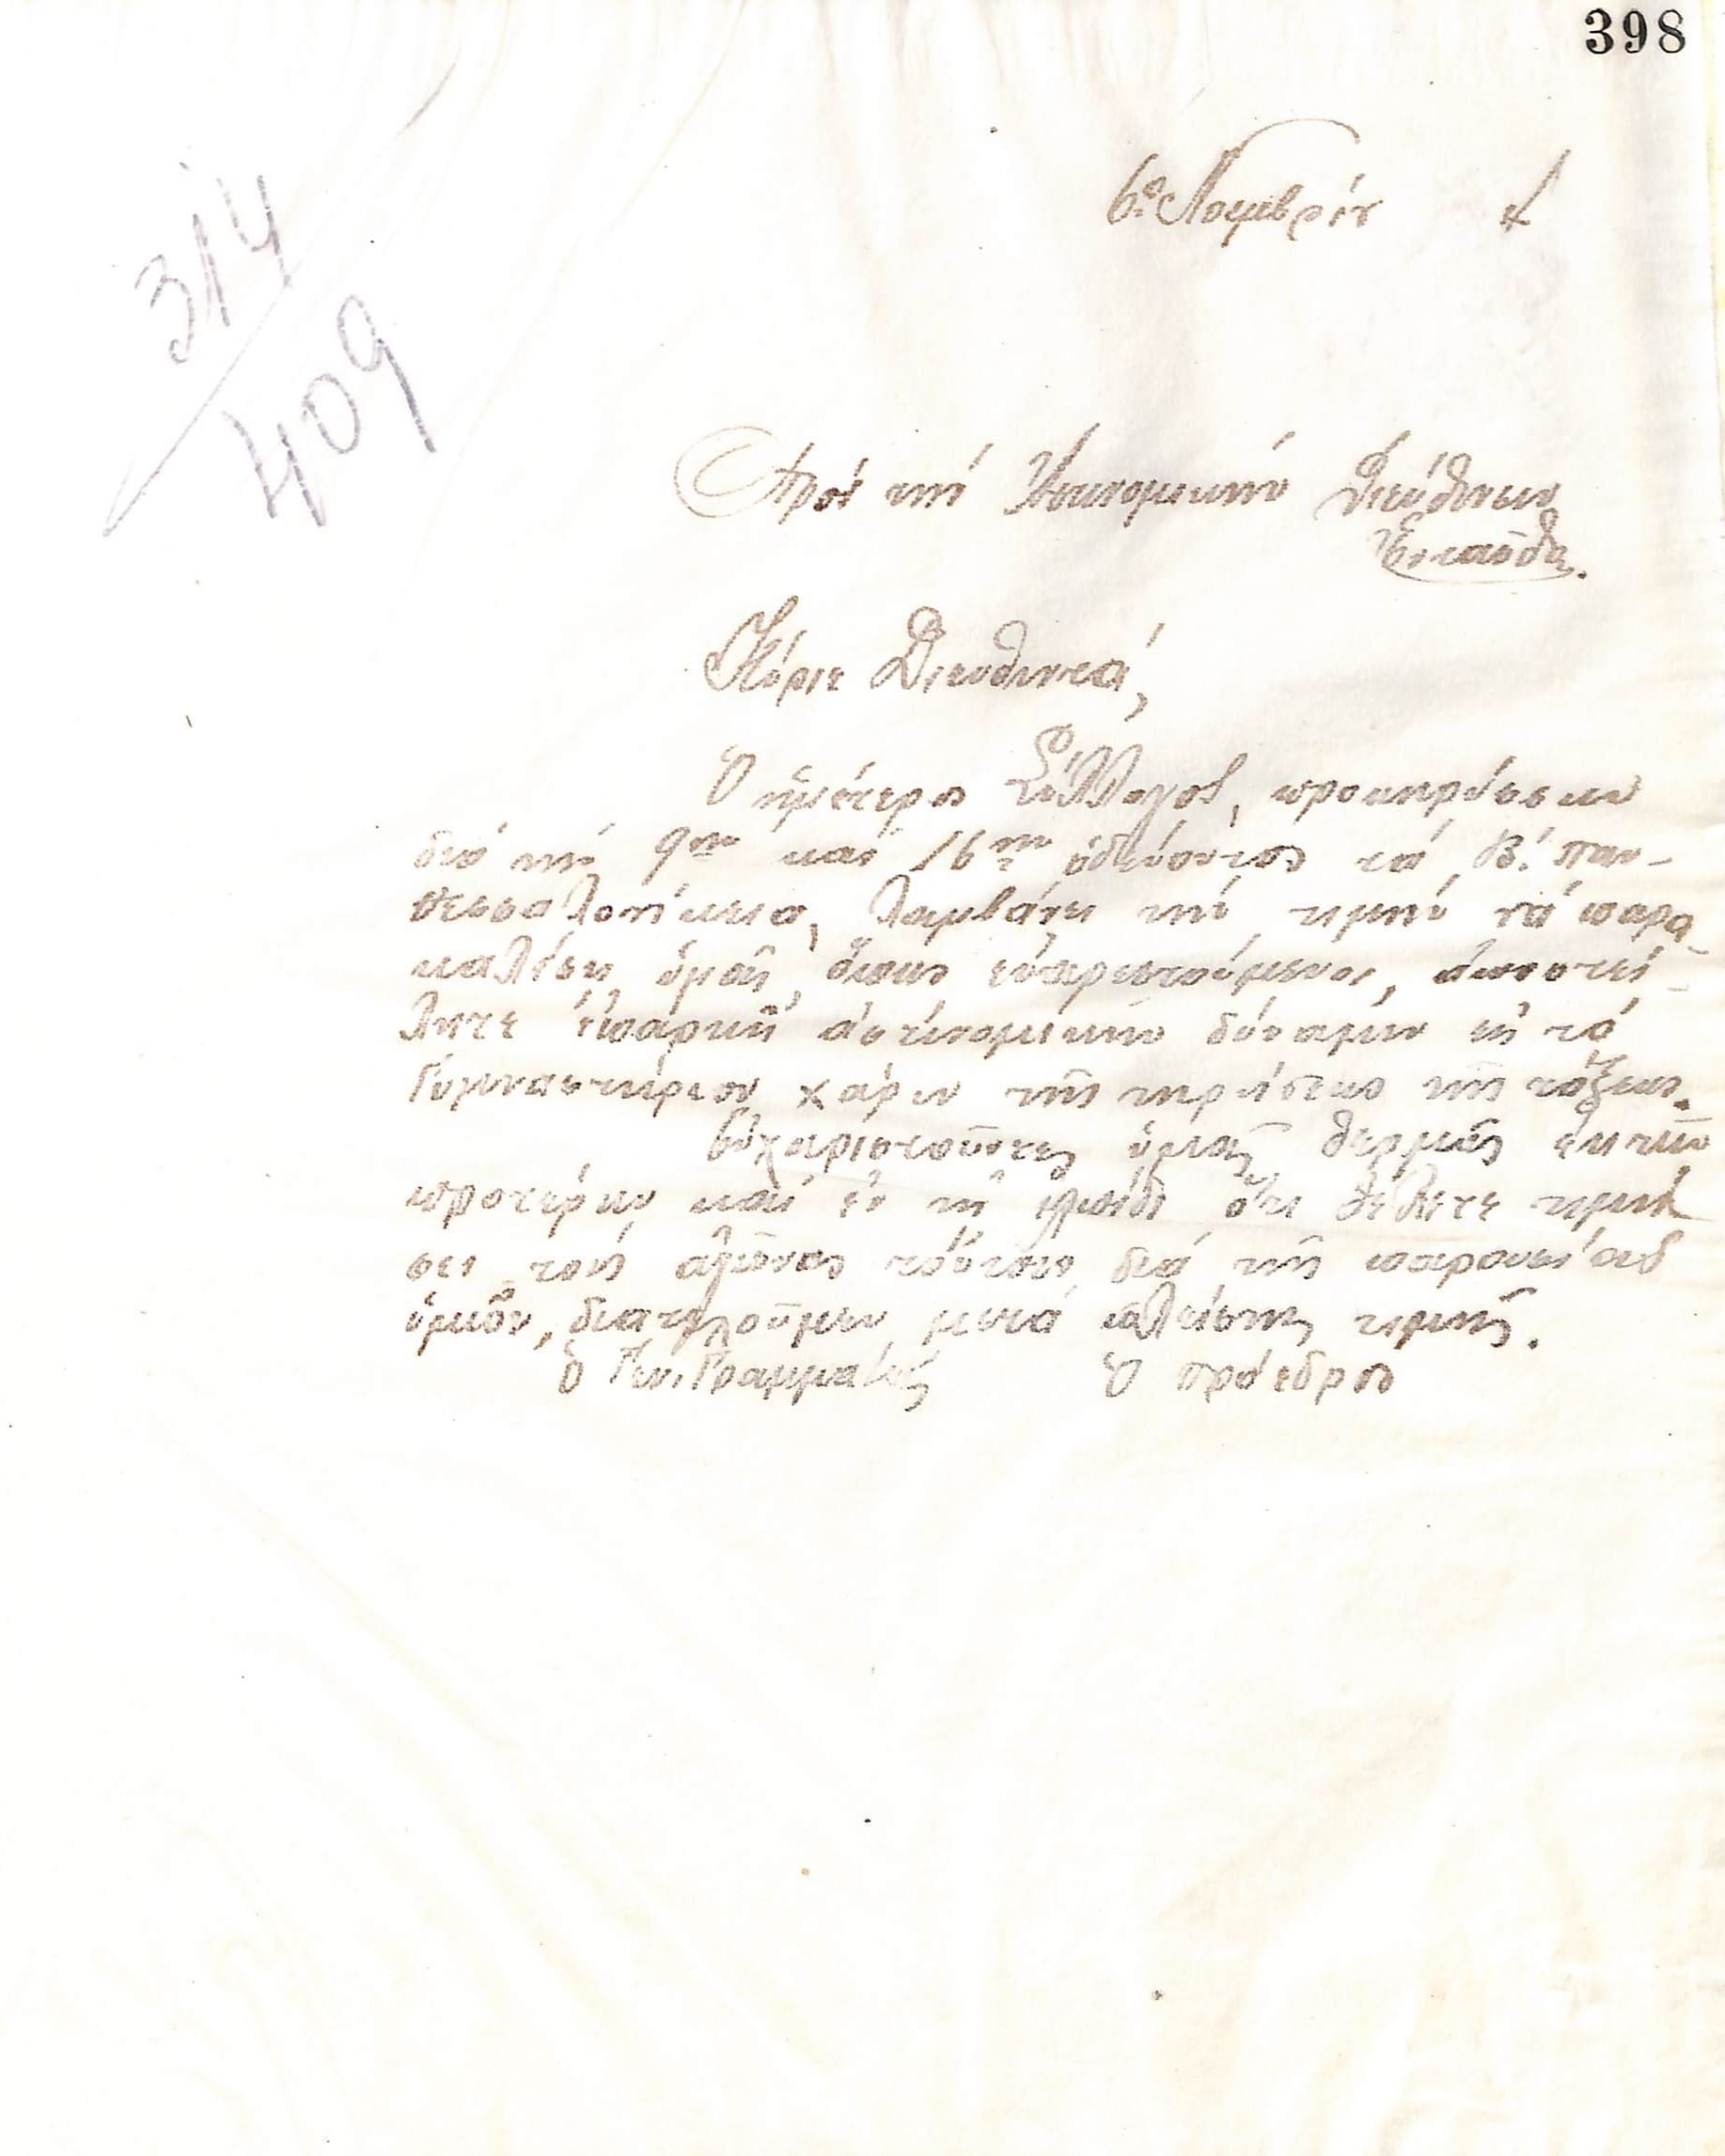 398
6ῃ Νοεμβρίου
314
409
Πρός τήν Ἀστυνομικήν Διεύθυνσιν
Ἐνταῦθα.
Κύριε Διευθυντά,
Ὁ ἡμέτερος Σύλλογος, προκηρύσσων
διά τήν 9ην καί 16ην ὁδεύοντος τά Β΄. Παν-
θεσσαλονίκεια, λαμβάνει τήν τιμήν νά παρα-
καλέσῃ ὑμᾶς, ὅπως εὐαρεστούμενος, ἀποστεί-
λητε ἐπαρκῆ ἀστυνομικήν δύναμιν εἰς τό
Γυμναστήριον χάριν τῆς τηρήσεως τῆς τάξεως.
Εὐχαριστοῦντες ὑμᾶς θερμῶς ἐκ τῶν
προτέρων καί ἐν τῇ ἐλπίδι ὅτι θέλετε τιμή
σει τούς ἀγῶνας τούτους διά τῆς παρουσίας
ὑμῶν, διατελοῦμεν μετά πλείστης τιμῆς.
Ὁ Γεν. Γραμματεύς Ὁ πρόεδρος